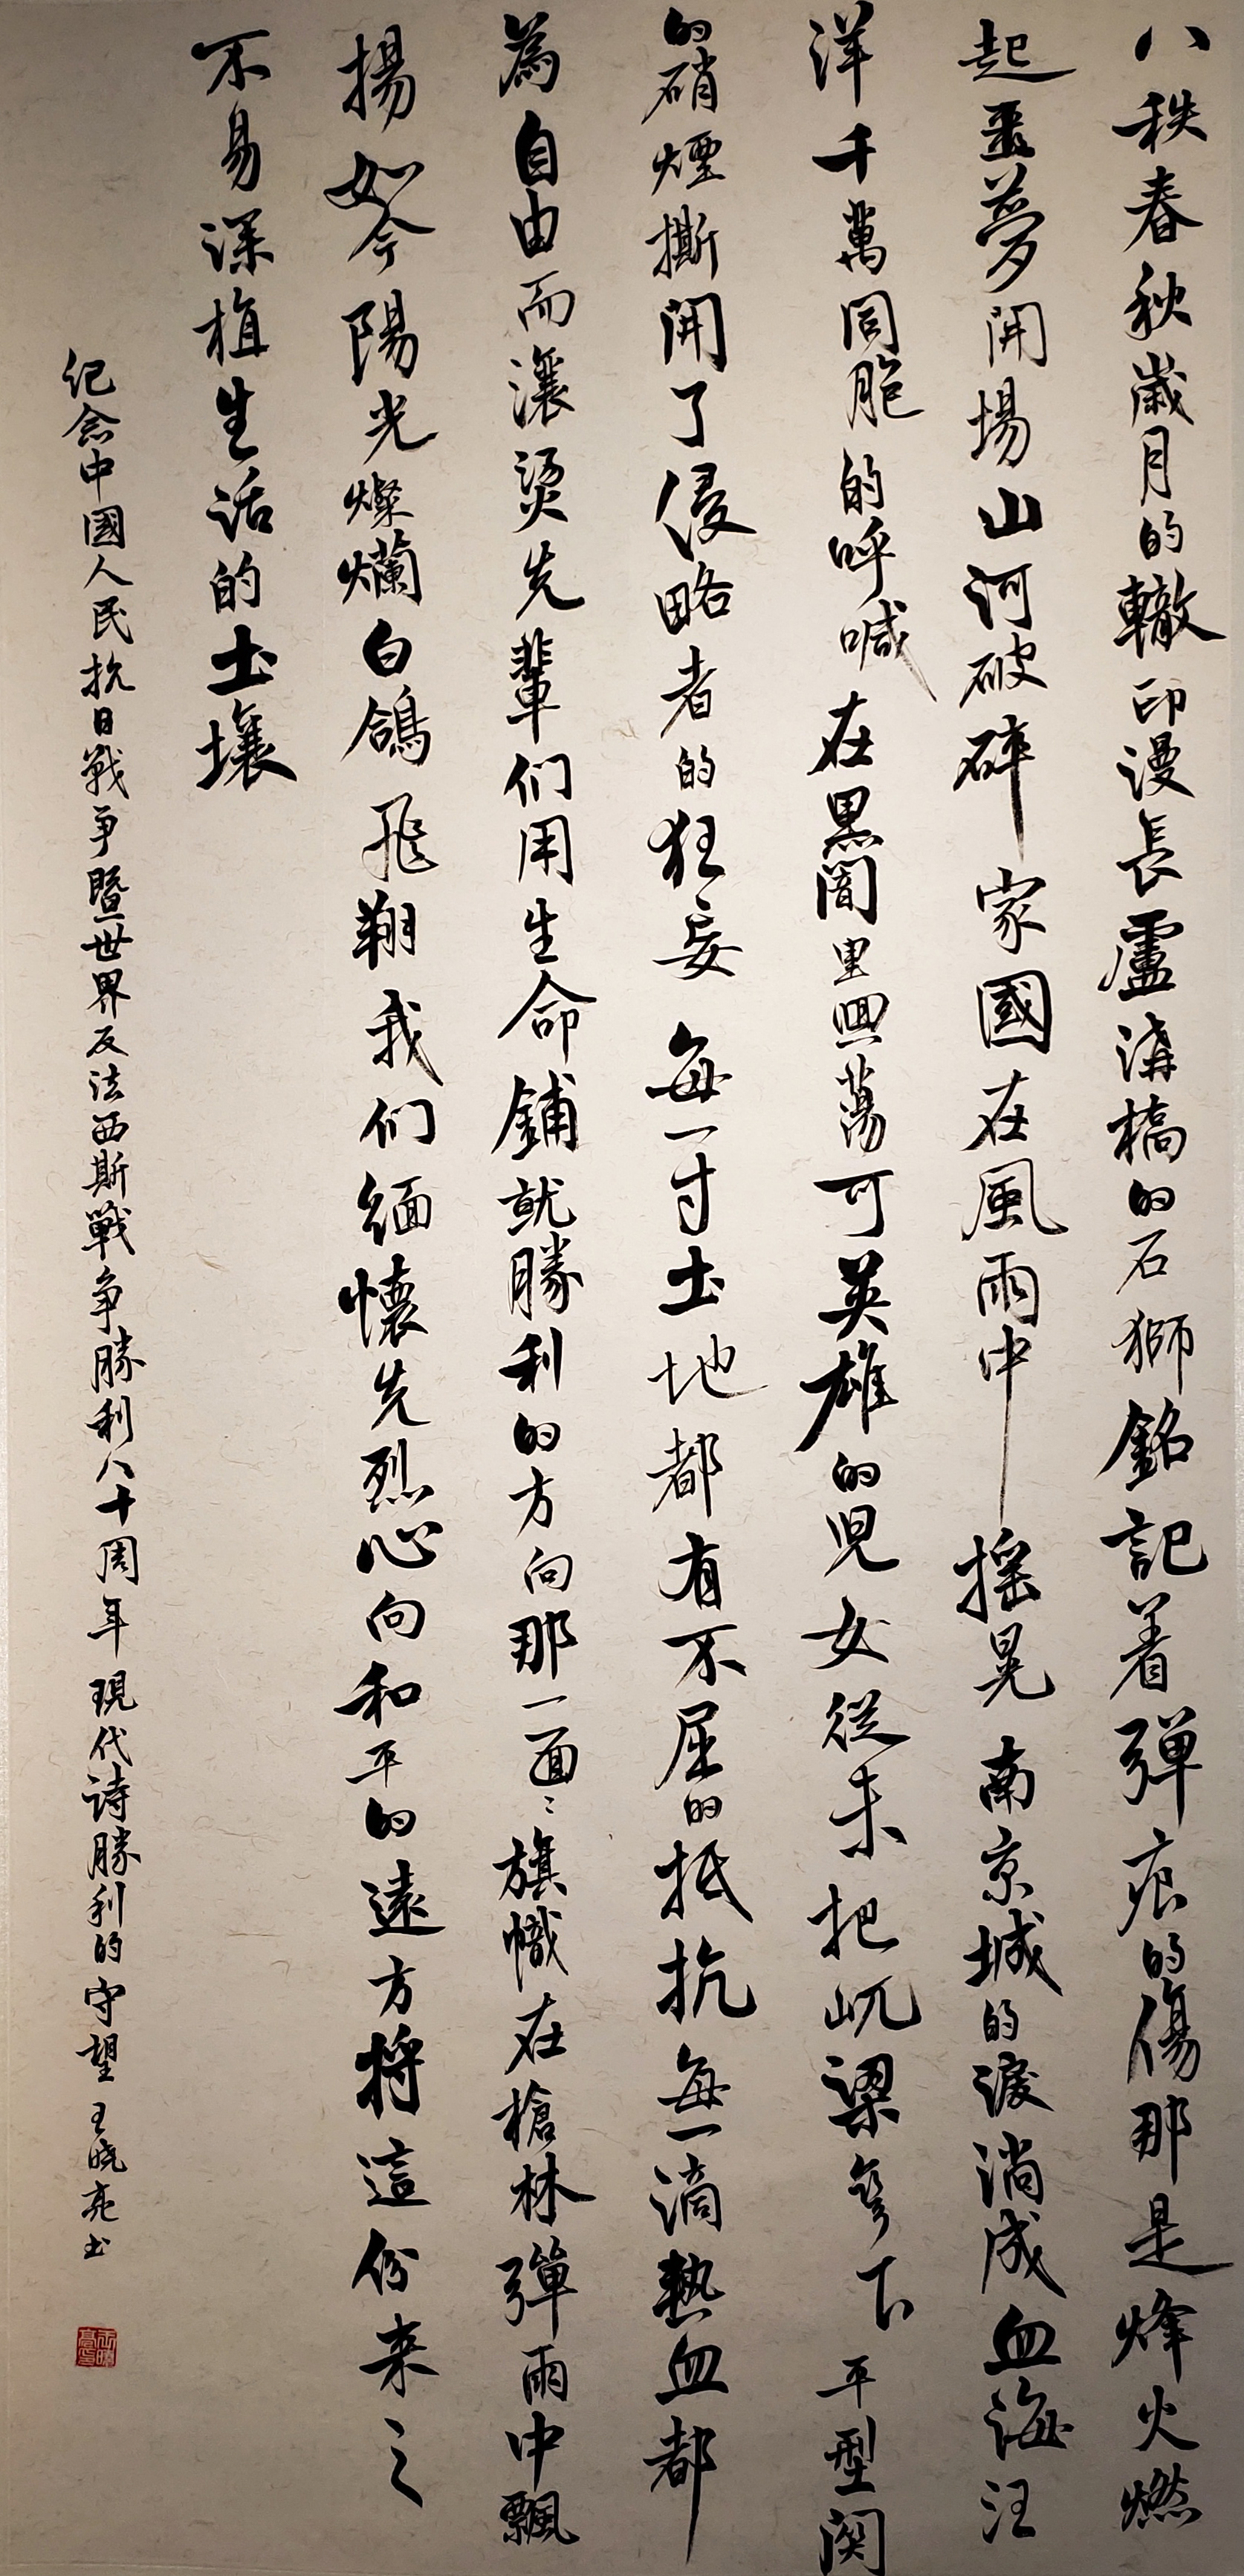 八秩春秋歲月的轍印漫長盧溝橋的石獅銘記着彈痕的傷那是烽火燃
起噩夢開場山河破碎家國在風雨中搖晃南京城的淚淌成血海汪
洋千萬同胞的呼喊在黑闇里回蕩可英雄的児女從未把屼梁彎下平型関
的硝煙撕開了侵略者的狂妄每一寸土地都有不屈的抵抗每一滴熱血都
為自由而瀼燙先輩们用生命鋪就勝利的方向那一面面旗幟在槍林彈雨中飄
揚如今陽光燦爛白鴿飛翔我们緬懷先烈心向和平的遠方將這份来之
不易深植生活的土壤
纪念中國人民抗日戰争暨世界反法西斯戰争勝利八十周年現代詩勝利的守望王晓亮书